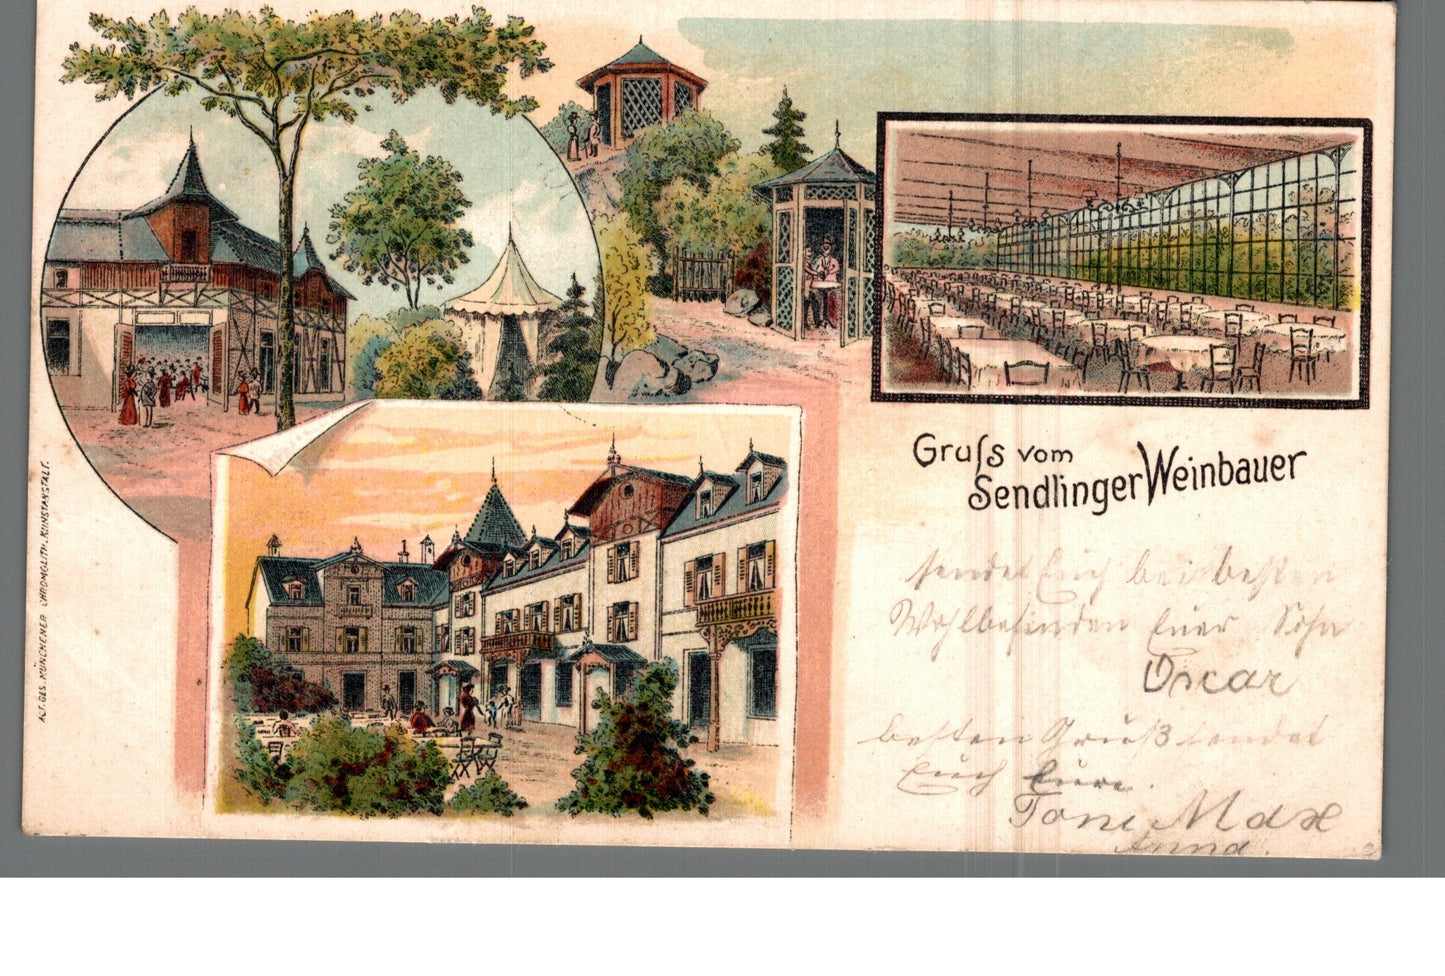 Gruſs vom
Sendlinger Weinbauer
sendet Euch bei besten
Wohlbefinden Euer Sohn
Oscar
besten Gruß sendet
Euch Eure
Toni Max
Anna.
ACT. GES. MÜNCHENER CHROMOLITH. KUNSTANSTALT.